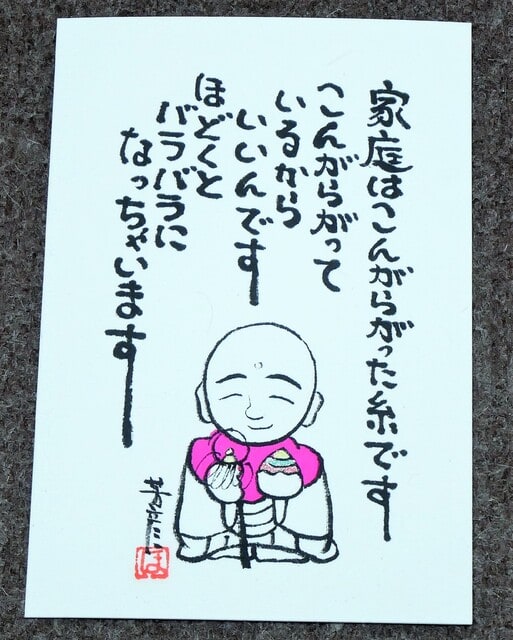 家庭はこんがらがった糸です
こんがらがって
いるから
いいんです
ほどくと
バラバラに
なっちゃいます
ほ